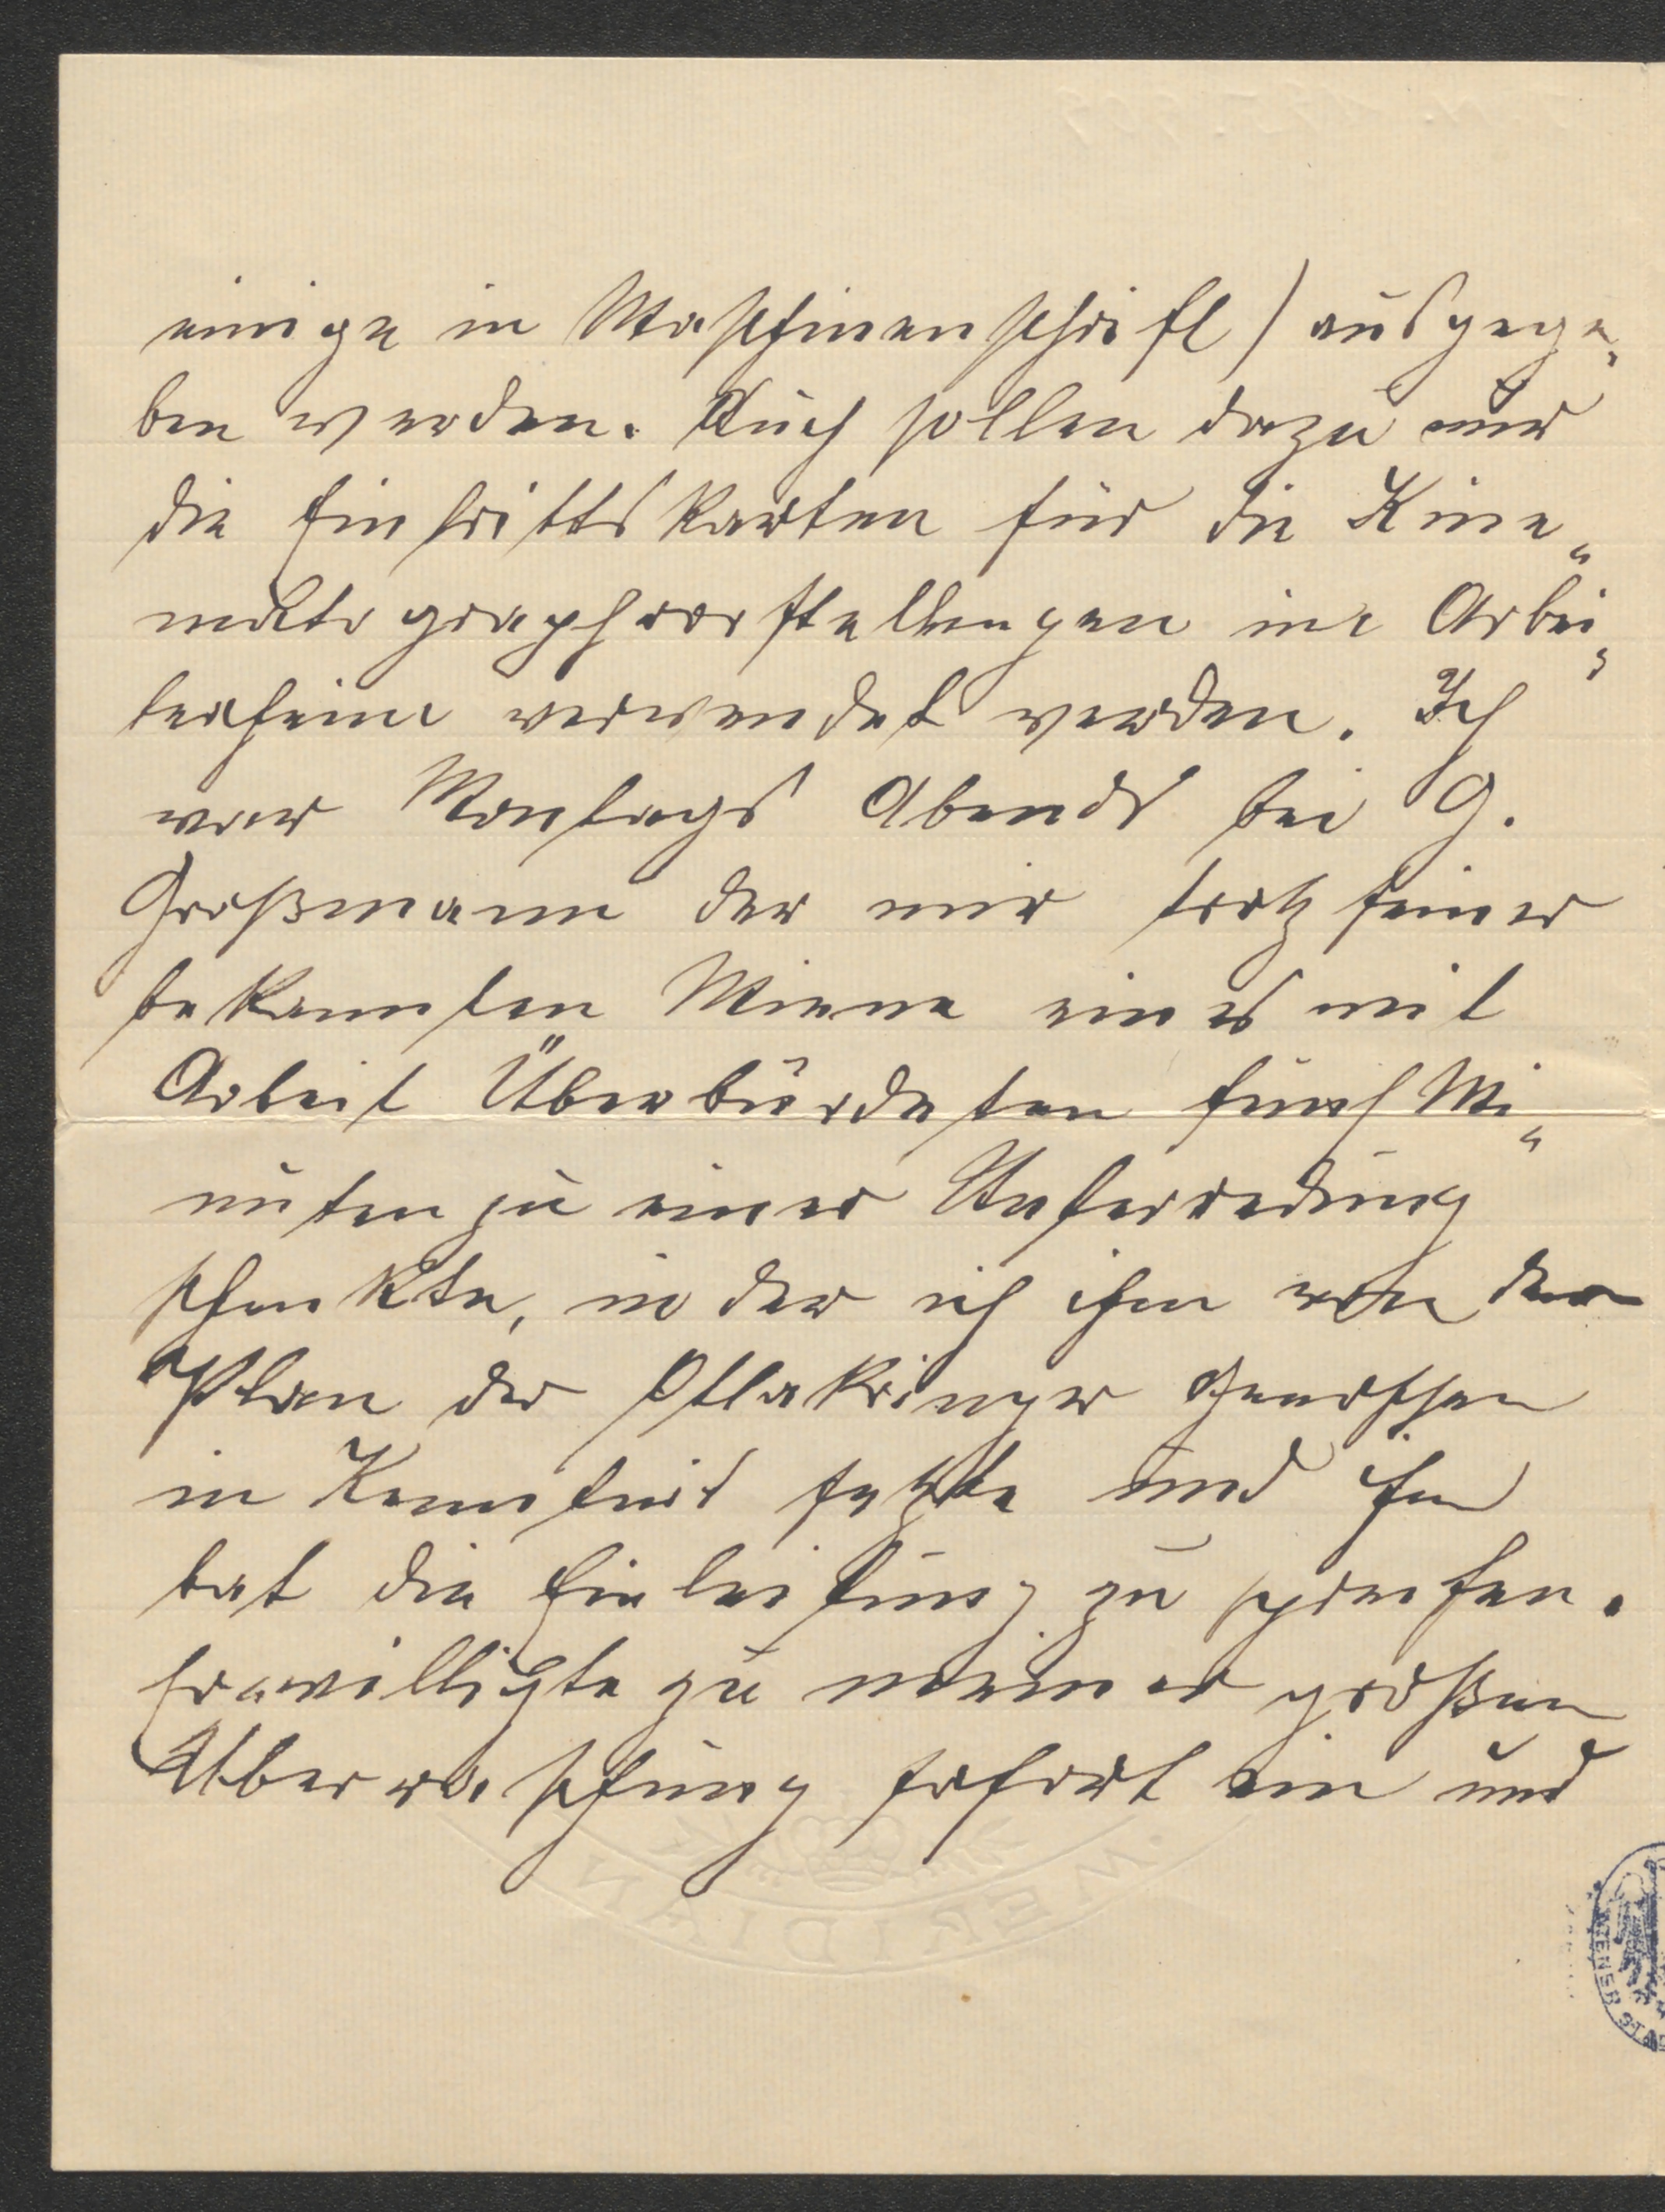 einige in Maschinenschrift) ausgege„
ben werden. Auch sollen dazu nur
die Eintrittskarten für die Kine„
matographvorstellungen im Arbei„
terheim verwendet werden. Ich
war Montags Abends bei G.
Großmann der mir trotz seiner
bekannten Miene eines mit
Arbeit Überbürdeten fünf Mi„
nuten zu einer Unterredung
schenkte, in der ich ihm von dem
Plan der Ottakringer Genossen
in Kenntnis setzte und ihn
bat die Einleitung zu sprechen.
Er willigte zu meiner großen
Überraschung sofort ein und
MERIDIAN